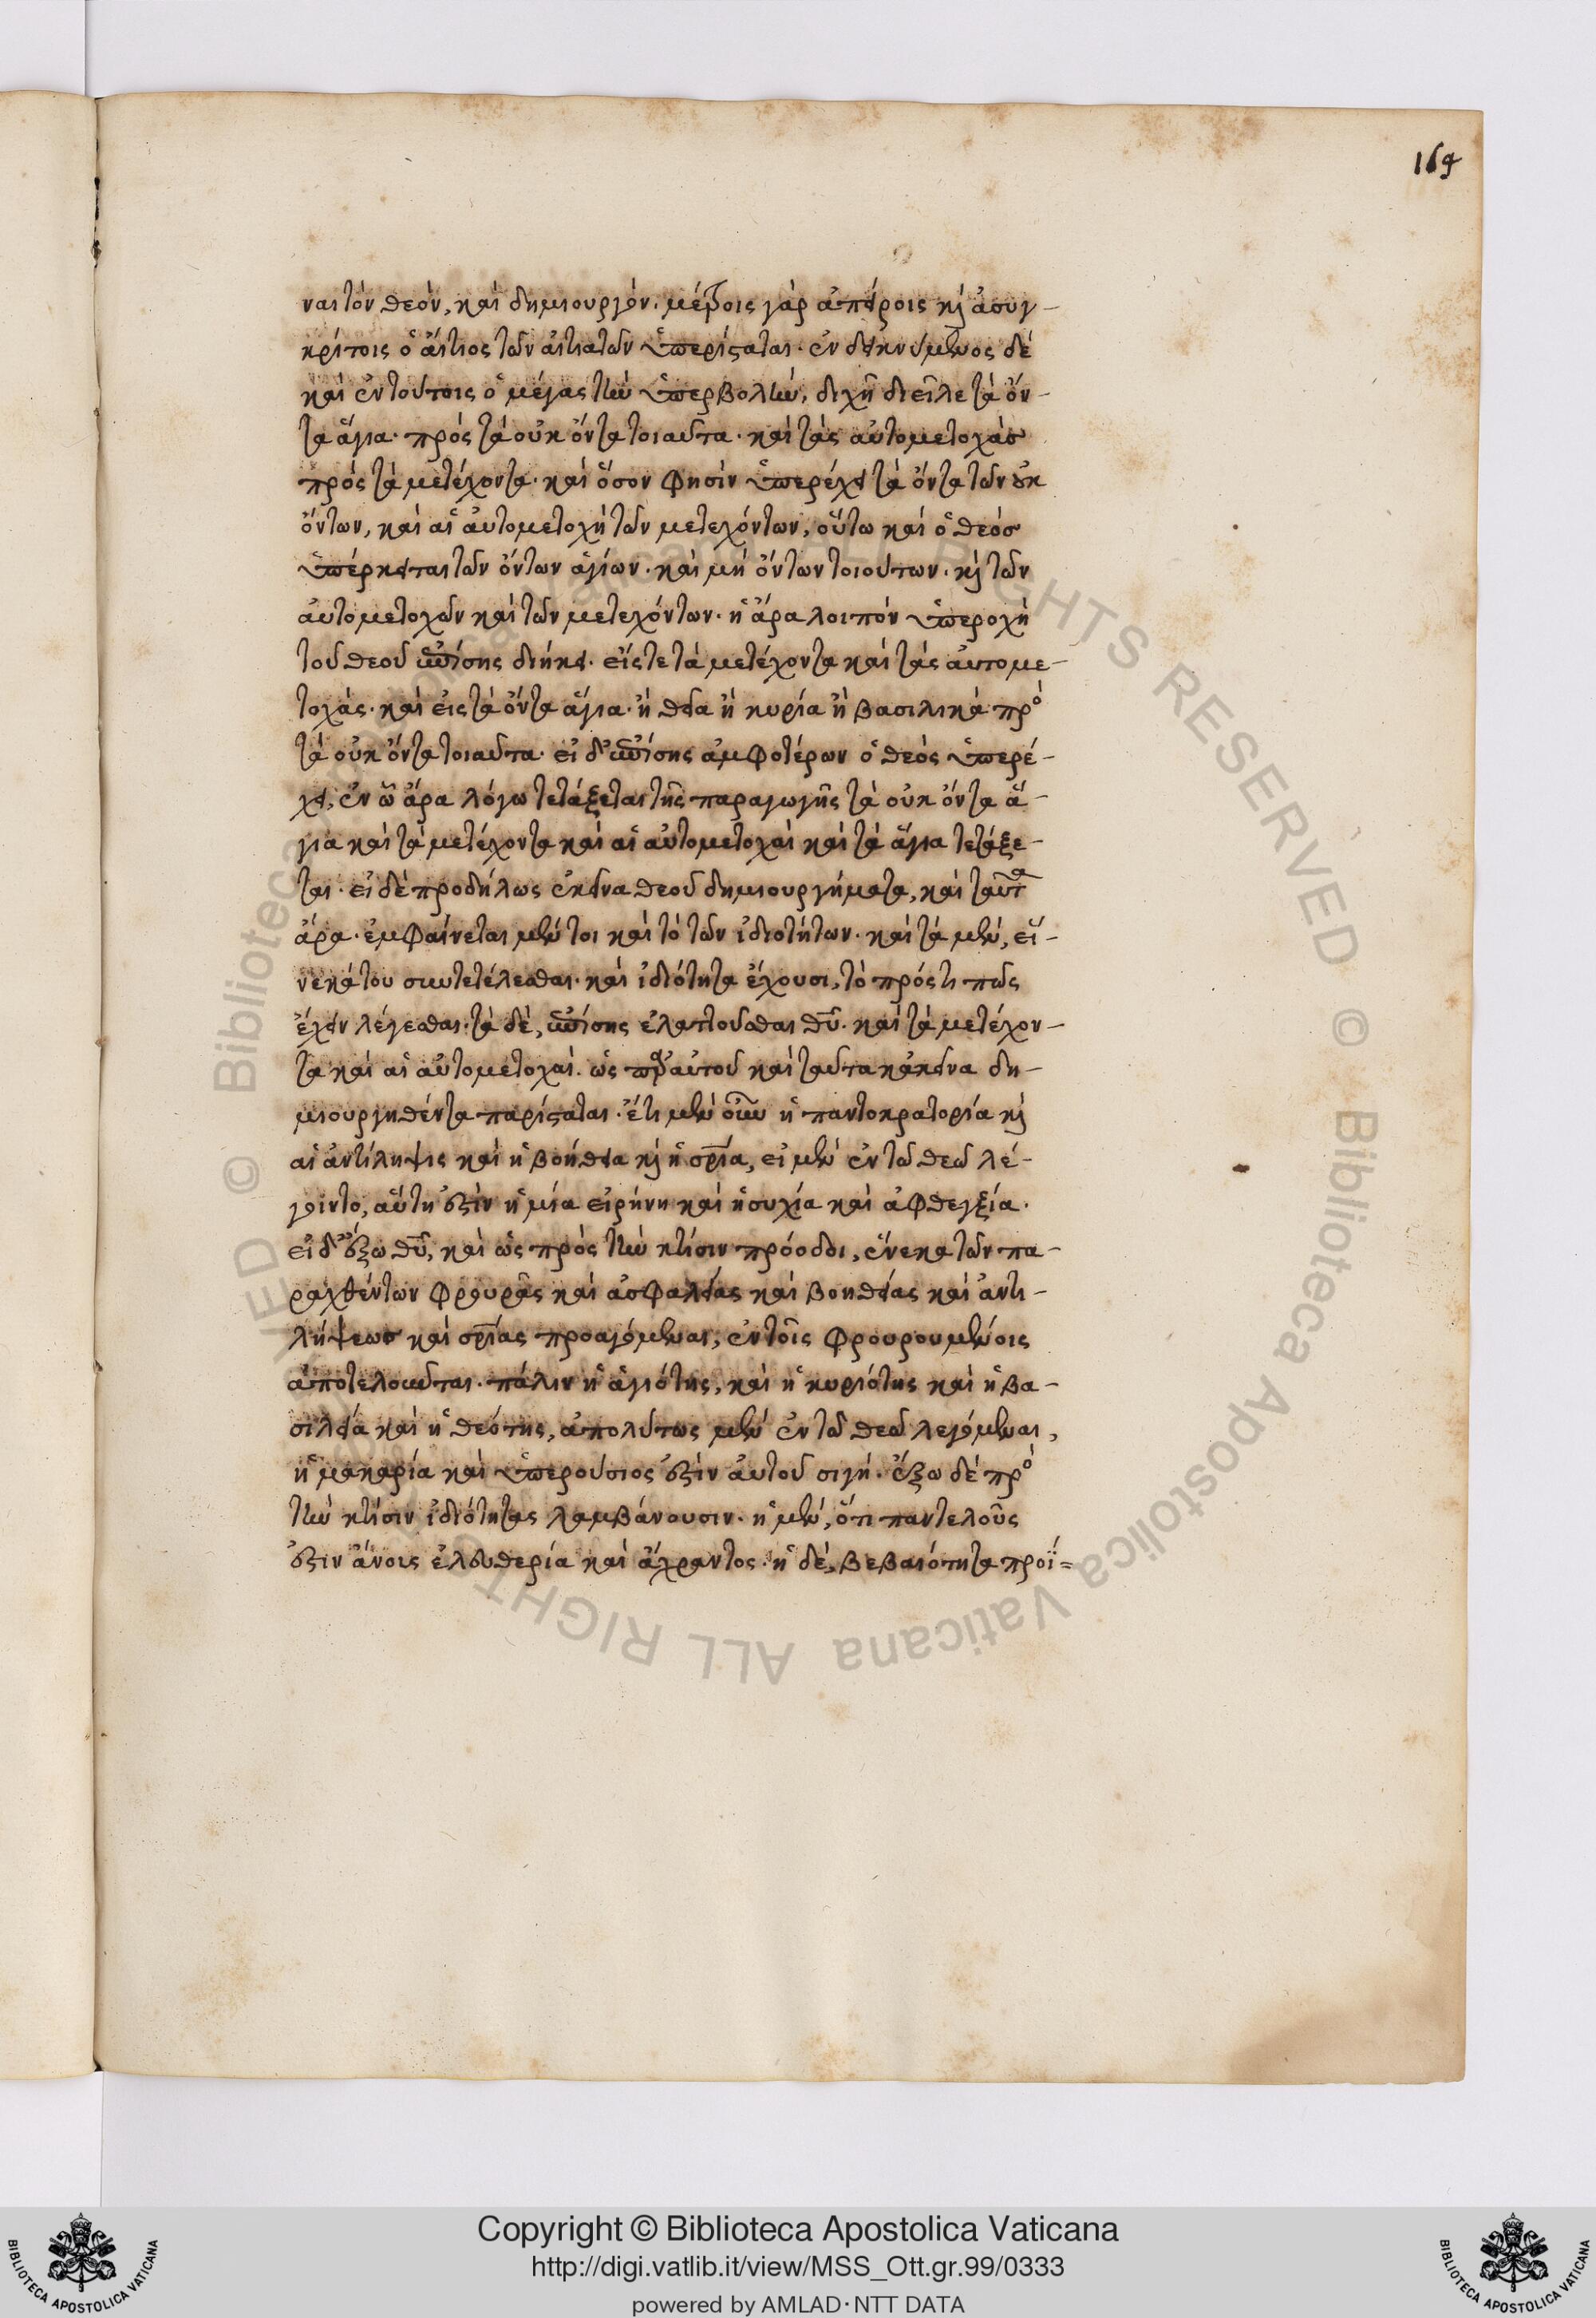 164
ναι τὸν θεὸν, καὶ δημιουργόν. μέτροις γὰρ ἀπείροις κ ἀσυγ-
κρίτοις ὁ αἴτιος τῶν αἰτιατῶν ὑπερίσταται. ἐνδεικνύμενος δὲ
καὶ ἐν τούτοις ὁ μέγας τὴν ὑπερβολὴν, διχῇ διεῖλε τὰ ὄν-
τα ἅγια. πρὸς τὰ οὐκ ὄντα τοιαῦτα. καὶ τὰς αὐτομετοχὰς
πρὸς τὰ μετέχοντα. καὶ ὅσον φησὶν ὑπερέχει τὰ ὄντα τῶν οὐκ
ὄντων, καὶ αἱ αὐτομετοχὴ τῶν μετεχόντων, οὕτω καὶ ὁ θεὸς
ὑπέρκειται τῶν ὄντων ἁγίων. καὶ μὴ ὄντων τοιούτων. κ τῶν
αὐτομετοχῶν καὶ τῶν μετεχόντων. ἡ ἄρα λοιπὸν ὑπεροχὴ
τοῦ θεοῦ ἐπίσης διήκει. εἴς τε τὰ μετέχοντα καὶ τὰς αὐτομε-
τοχάς. καὶ εἰς τὰ ὄντα ἅγια. ἢ θεῖα ἢ κυρία ἢ βασιλικὰ πρὸ
τὰ οὐκ ὄντα τοιαῦτα. εἰ δ' ἐπίσης ἀμφοτέρων ὁ θεὸς ὑπερέ-
χει, ἐν ᾧ ἄρα λόγω τετάξεται τῆς παραγωγῆς τὰ οὐκ ὄντα ἅ-
για καὶ τὰ μετέχοντα καὶ αἱ αὐτομετοχαὶ καὶ τὰ ἅγια τετάξε-
ται. εἰ δὲ προδήλως ἐκεῖνα θεοῦ δημιουργήματα, καὶ ταῦτα
ἄρα. ἐμφαίνεται μέντοι καὶ τὸ τῶν ἰδιοτήτων. καὶ τὰ μὲν, εἵ-
νεκά του συντετέλεσθαι. καὶ ἰδιότητα ἔχουσι, τὸ πρός τι πῶς
ἔχειν λέγεσθαι. τὰ δὲ, ἐπίσης ἐλαττοῦσθαι θυ. καὶ τὰ μετέχον-
τα καὶ αἱ αὐτομετοχαί. ὡς παρ' αὐτοῦ καὶ ταῦτα κἀκεῖνα δη-
μιουργηθέντα παρίσταται. ἔτι μὲν οὖν ἡ παντοκρατορία κ
αἱ ἀντίληψις καὶ ἡ βοήθεια κ ἡ σρία, εἰ μὲν ἐν τῶ θεῶ λέ-
γοιντο, αὕτη ἐστὶν ἡ μία εἰρήνη καὶ ἡσυχία καὶ ἀφθεγξία.
εἰ δ' ἔξω θυ, καὶ ὡς πρὸς τὴν κτίσιν πρόοδοι, ἕνεκα τῶν πα-
ραχθέντων φρουρᾶς καὶ ἀσφαλείας καὶ βοηθείας καὶ ἀντι-
λήψεως καὶ σρίας προαγόμεναι, ἐν τοῖς φρουρουμένοις
ἀποτελοῦνται. πάλιν ἡ ἁγιότης, καὶ ἡ κυριότης καὶ ἡ βα-
σιλεία καὶ ἡ θεότης, ἀπολύτως μὲν ἐν τῶ θεῶ λεγόμεναι,
ἡ μακαρία καὶ ὑπερούσιος ἐστὶν αὐτοῦ σιγή. ἔξω δὲ πρὸ
τὴν κτίσιν ἰδιότητας λαμβάνουσιν. ἡ μὲν, ὅτι παντελοῦς
ἐστιν ἄνοις ἐλευθερία καὶ ἄχραντος. ἡ δὲ, βεβαιότητα προϊ=
Copyright © Biblioteca Apostolica Vaticana
http://digi.vatlib.it/view/MSS_Ott.gr.99/0333
powered by AMLAD·NTT DATA
BIBLIOTECA APOSTOLICA VATICANA
BIBLIOTECA APOSTOLICA VATICANA